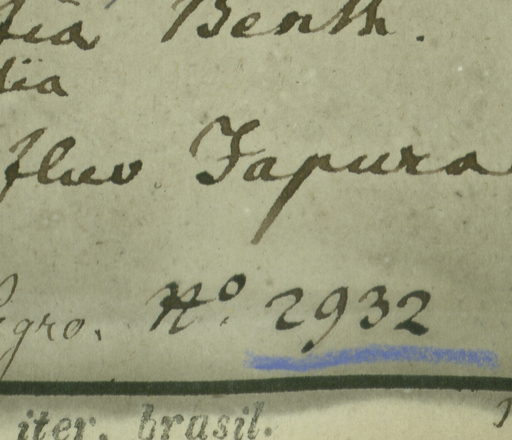 tia Benth.
dia
fluv Japura
egro. No. 2932
iter. brasil.